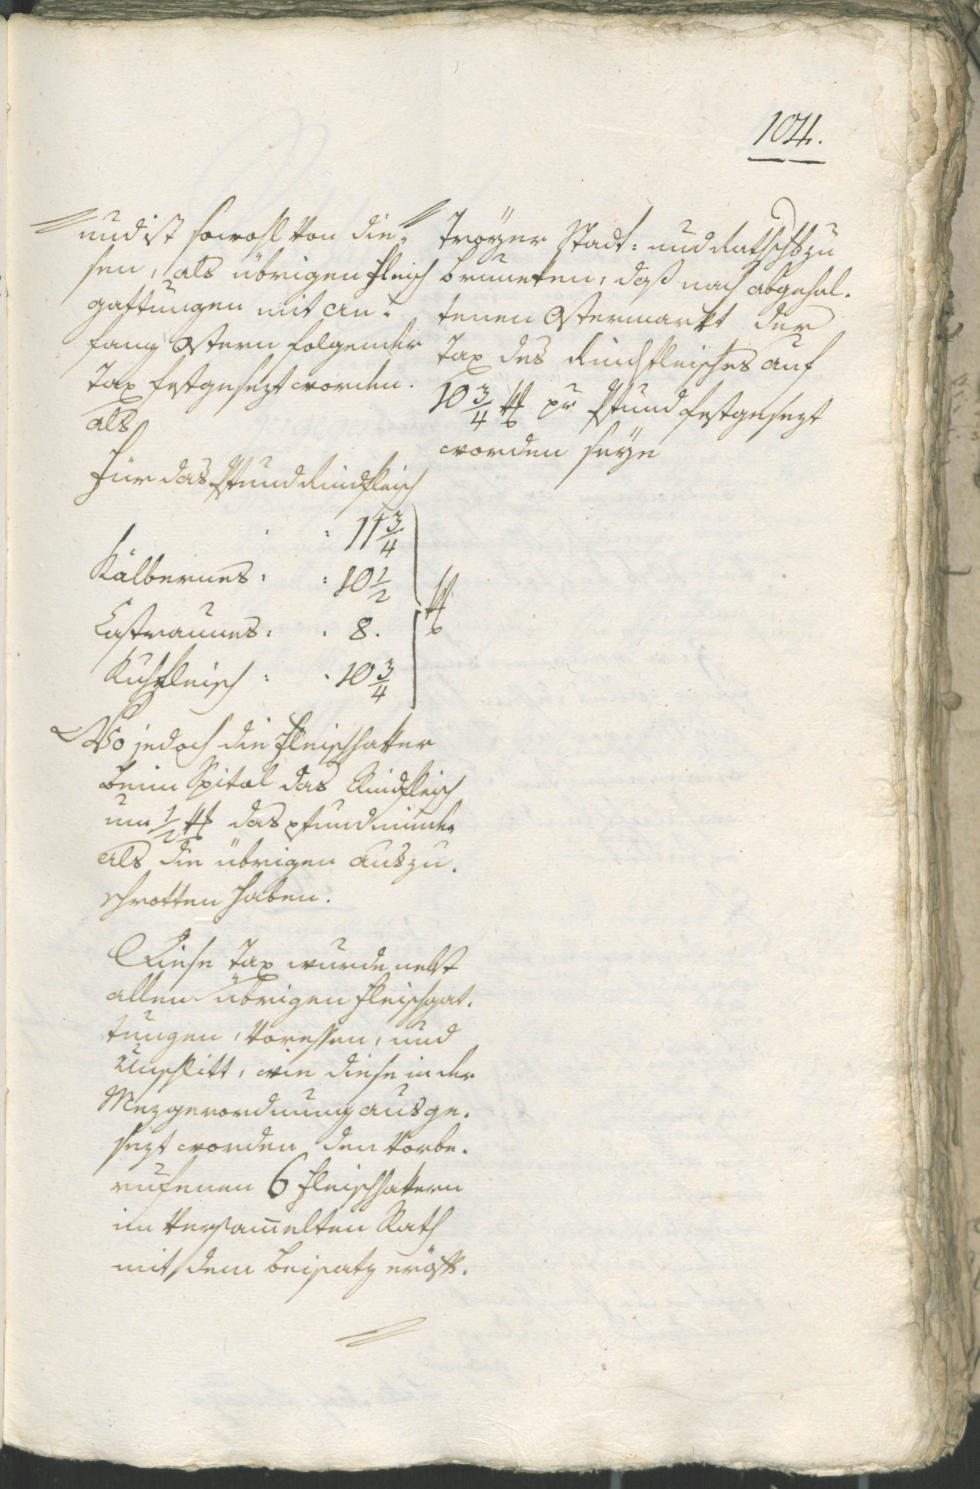 104.
und ist sowohl von die-
sen, als übrigen Fleisch
gattungen mit an-
fang Ostern folgender
Tax festgesezt worden.
als
Für das Pfund Rindfleisch
: : 11 3/4
Kälbernes : : 10 1/2
Castraunes : . 8.
Kuhfleisch : . 10 3/4
xr
Wo jedoch die Fleischhaker
beim Spital das Rindfleisch
um 1/2 xr das pfund minder
als die übrigen auszu-
schrotten haben.
Diese Tax wurde nebst
allen übrigen Fleischgat-
tungen, Voressen, und
Unschlitt, wie diese in der
Mezgerordnung ausge-
sezt worden den Vorbe-
rufenen 6 Fleischhakern
im Versam̄elten Rath
mit dem beisatz eröff-
Stadt- und
Bruneken, daß nach abgehal-
tenen Ostermarkt der
Tax des Rindfleisches auf
10 3/4 xr pr Pfund festgesezt
worden seye